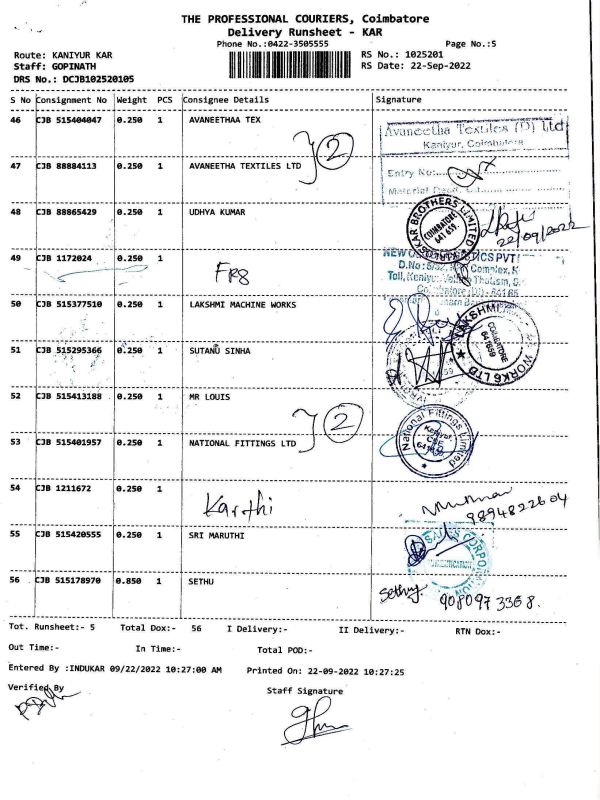 THE PROFESSIONAL COURIERS, Coimbatore
Delivery Runsheet - KAR
Phone No.:0422-3505555 Page No.:5
Route: KANIYUR KAR RS No.: 1025201
Staff: GOPINATH RS Date: 22-Sep-2022
DRS No.: DCJB102520105
S No Consignment No Weight PCS Consignee Details Signature
46 CJB 515404047 0.250 1 AVANEETHAA TEX
Avaneetha Textiles (P) Ltd
Kaniyur, Coimbatore
2
47 CJB 88884113 0.250 1 AVANEETHA TEXTILES LTD
Entry No:
48 CJB 88865429 0.250 1 UDHYA KUMAR
BROTHERS LIMITED
COIMBATORE
641 659
22/09/2022
49 CJB 1172024 0.250 1
FR8
50 CJB 515377510 0.250 1 LAKSHMI MACHINE WORKS
LAKSHMI WORKS LTD
COIMBATORE
641659
51 CJB 515295366 0.250 1 SUTANU SINHA
52 CJB 515413188 0.250 1 MR LOUIS
2
53 CJB 515401957 0.250 1 NATIONAL FITTINGS LTD
National Fittings Limited
Kaniyur,
CBE
54 CJB 1211672 0.250 1
Karthi
9894822604
55 CJB 515420555 0.250 1 SRI MARUTHI
56 CJB 515178970 0.850 1 SETHU
Sethu
9080973368.
Tot. Runsheet:- 5 Total Dox:- 56 I Delivery:- II Delivery:- RTN Dox:-
Out Time:- In Time:- Total POD:-
Entered By :INDUKAR 09/22/2022 10:27:00 AM Printed On: 22-09-2022 10:27:25
Verified By Staff Signature